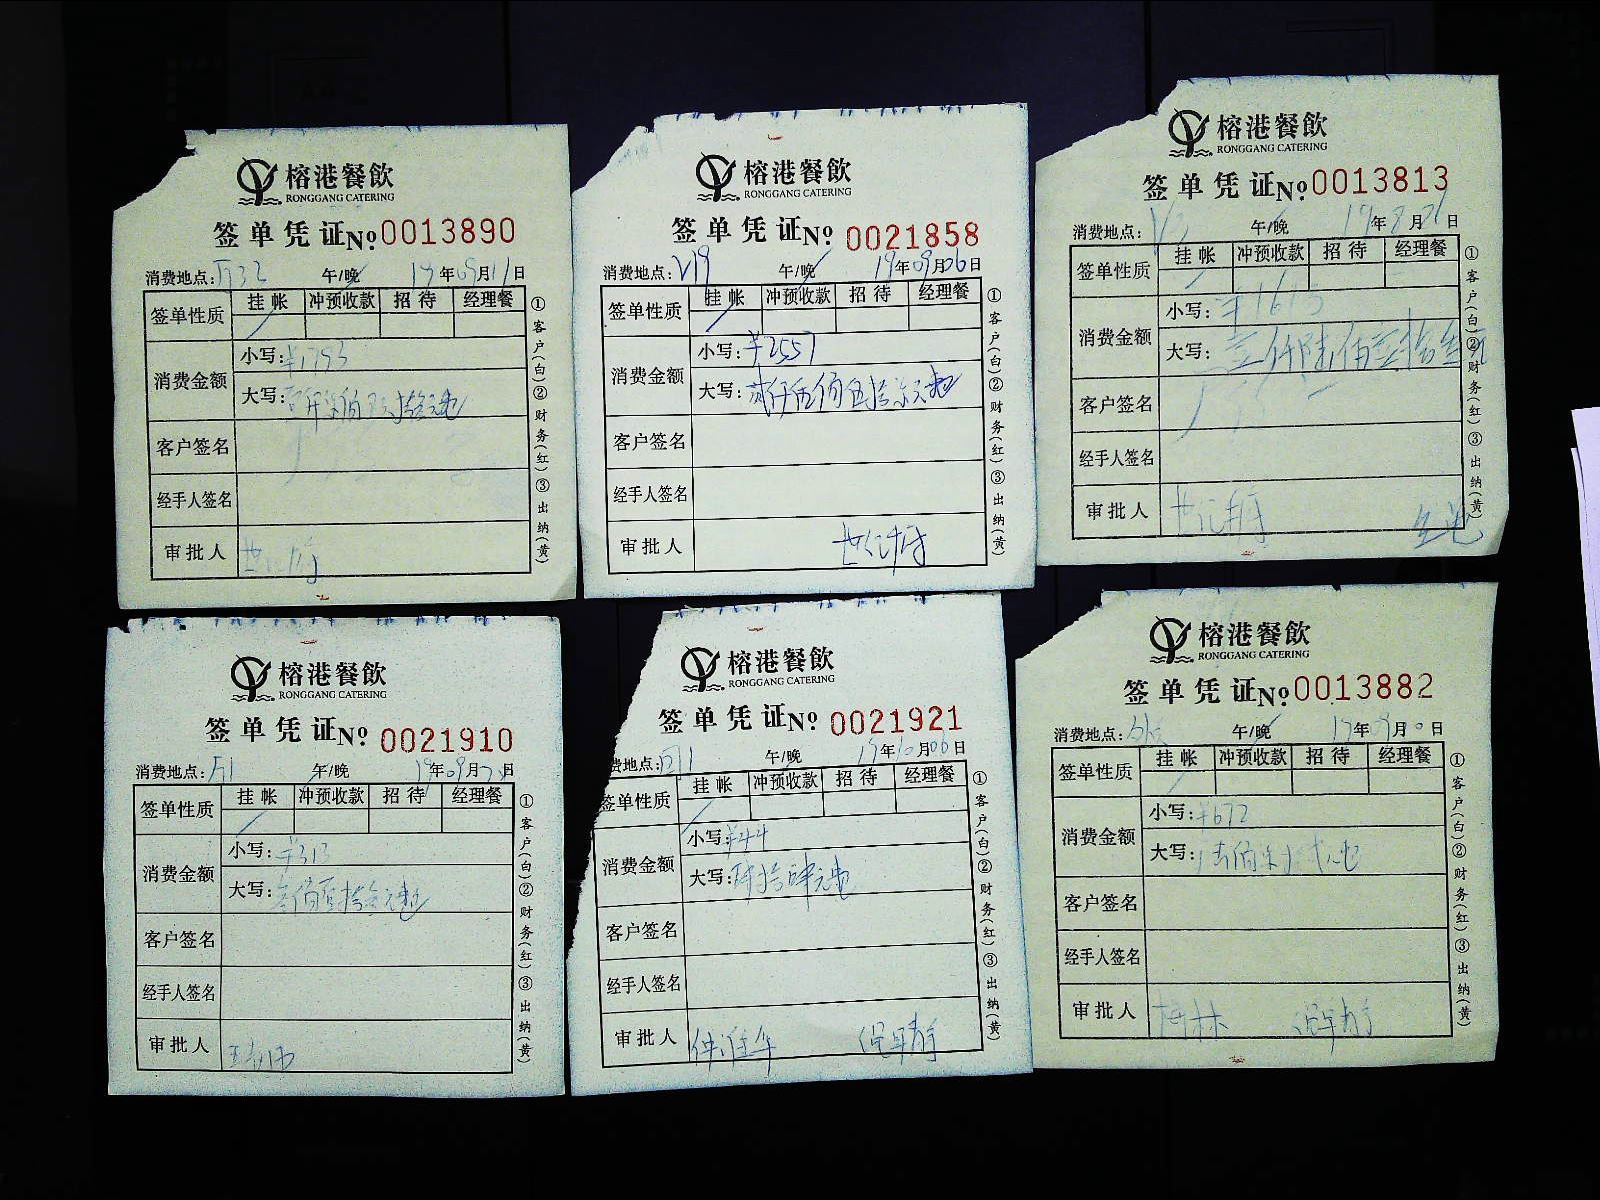 榕港餐飲
RONGGANG CATERING
签单凭证No 0013890
消费地点: 午/晚 年09月11日
签单性质 挂帐 冲预收款 招待 经理餐
消费金额 小写:¥1793
大写:
客户签名
经手人签名
审批人
①客户(白)②财务(红)③出纳(黄)
榕港餐飲
RONGGANG CATERING
签单凭证No 0021858
消费地点:V19 午/晚 19年09月06日
签单性质 挂帐 冲预收款 招待 经理餐
消费金额 小写:¥2557
大写:贰仟伍佰伍拾柒元
客户签名
经手人签名
审批人
①客户(白)②财务(红)③出纳(黄)
榕港餐飲
RONGGANG CATERING
签单凭证No 0013813
消费地点: 午/晚 年8月日
签单性质 挂帐 冲预收款 招待 经理餐
消费金额 小写:
大写:
客户签名
经手人签名
审批人
①客户(白)②财务(红)③出纳(黄)
榕港餐飲
RONGGANG CATERING
签单凭证No 0021910
消费地点: 午/晚 19年09月日
签单性质 挂帐 冲预收款 招待 经理餐
消费金额 小写:¥313
大写:
客户签名
经手人签名
审批人
①客户(白)②财务(红)③出纳(黄)
榕港餐飲
RONGGANG CATERING
签单凭证No 0021921
费地点: 午/晚 19年10月06日
签单性质 挂帐 冲预收款 招待 经理餐
消费金额 小写:¥44
大写:
客户签名
经手人签名
审批人
①客户(白)②财务(红)③出纳(黄)
榕港餐飲
RONGGANG CATERING
签单凭证No 0013882
消费地点: 午/晚 年09月日
签单性质 挂帐 冲预收款 招待 经理餐
消费金额 小写:¥672
大写:
客户签名
经手人签名
审批人
①客户(白)②财务(红)③出纳(黄)